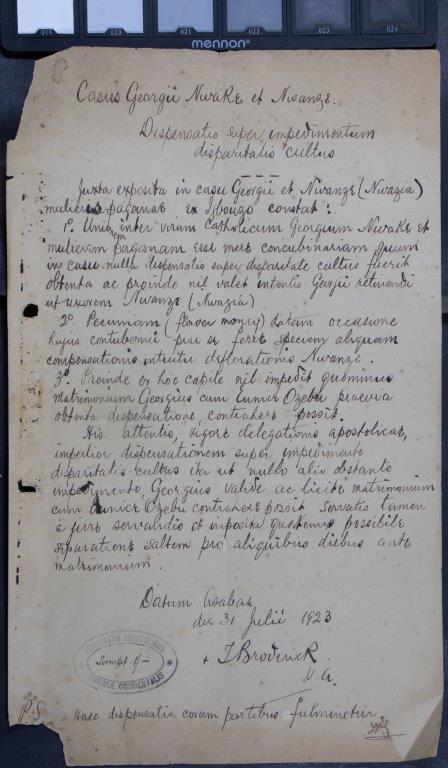 019 020 021 022 023 024
mennon
Casus Georgii Nwake et Nwanze.
Dispensatio super impedimentum
disparitatis cultus
Juxta exposita in casu Georgii et Nwanze (Nwazia)
mulieris paganae ex Igbouzo constat:
1º. Unionem inter virum Catholicum Georgium Nwake et
mulierem paganam esse mere concubinariam quum
in casu nulla dispensatio super disparitate cultus fuerit
obtenta ac proinde nil valet intentio Georgii retinendi
ut uxorem Nwanze (Nwazia)
2º. Pecuniam (flower money) datam occasione
hujus contubernii prae se ferre speciem aliquam
compensationis intuitu deflorationis Nwanze.
3º. Proinde ex hoc capite nil impedit quominus
matrimonium Georgius cum Eunice Ozebu praevia
obtenta dispensatione, contrahere possit.
His attentis, vigore delegationis apostolicae,
impertior dispensationem super impedimento
disparitatis cultus ita ut nullo alio obstante
impedimento, Georgius valide ac licite matrimonium
cum Eunice Ozebu contrahere possit servatis tamen
a jure servandis et imposita quatenus possibile
separatione saltem pro aliquibus diebus ante
matrimonium.
Datum Asabae
die 31 Julii 1923
+ J Broderick
V.A.
APOSTOLICUS
OCCIDENTALIS
P.S.
Haec dispensatio coram partibus fulminetur